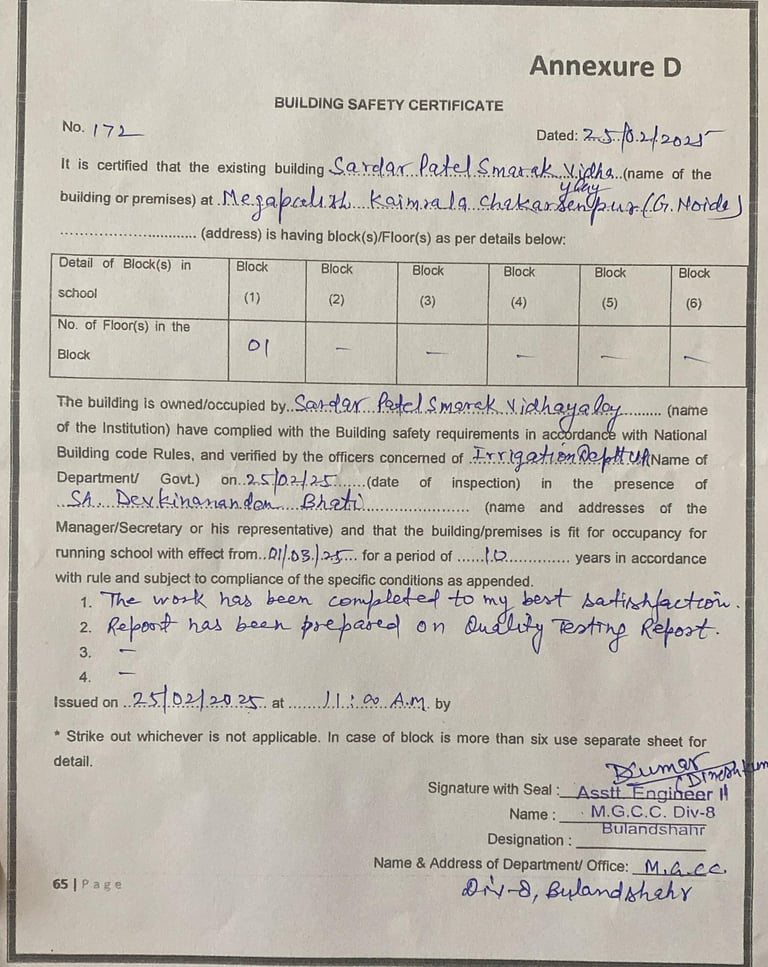 Annexure D
BUILDING SAFETY CERTIFICATE
No. 172
Dated: 25/02/2025
It is certified that the existing building Sardar Patel Smarak Vidha (name of the
yalay
building or premises) at Kaimrala Chakarsenpur (G. Noida)
(address) is having block(s)/Floor(s) as per details below:
Detail of Block(s) in school Block (1) Block (2) Block (3) Block (4) Block (5) Block (6)
No. of Floor(s) in the Block 01 – – – – –
The building is owned/occupied by..Sardar Patel Smarak Vidhayalay......... (name
of the Institution) have complied with the Building safety requirements in accordance with National
Building code Rules, and verified by the officers concerned of Irrigation Deptt UP (Name of
Department/ Govt.) on..25/02/25......(date of inspection) in the presence of
..Sh. Devkinandan Bhati...................... (name and addresses of the
Manager/Secretary or his representative) and that the building/premises is fit for occupancy for
running school with effect from..01/03/25... for a period of ......10............. years in accordance
with rule and subject to compliance of the specific conditions as appended.
1. The work has been completed to my best satishfaction.
2. Report has been prepared on Quality Testing Report.
3. –
4. –
Issued on ..25/02/2025. at .......11:00 A.M. by
* Strike out whichever is not applicable. In case of block is more than six use separate sheet for
detail.
Signature with Seal : Asstt. Engineer II
Name : M.G.C.C. Div-8
Bulandshahr
Designation :
Name & Address of Department/ Office: M.G.C.C.
Div-8, Bulandshahr
65 | Page